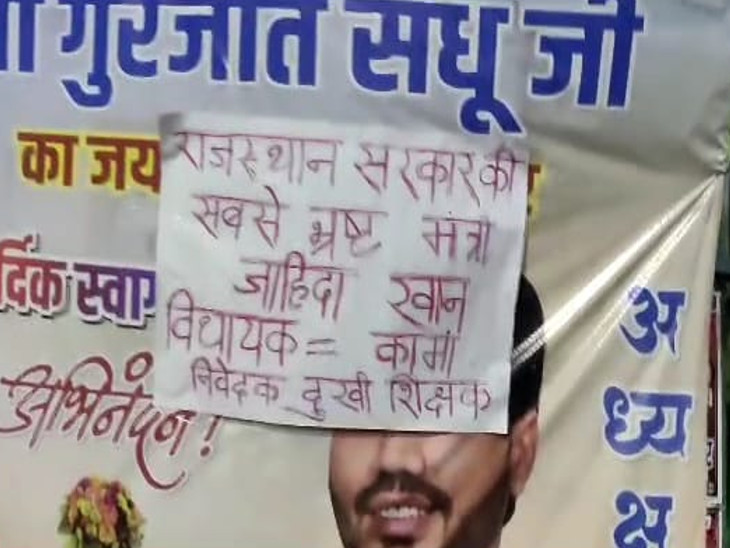 गुरजात सधू जी
का जय
राजस्थान सरकार की
सबसे भ्रष्ट मंत्री
जाहिदा खान
विधायक = कामां
निवेदक दुखी शिक्षक
र्दिक स्वाग
अभिनंदन!
अ
ध्य
क्ष